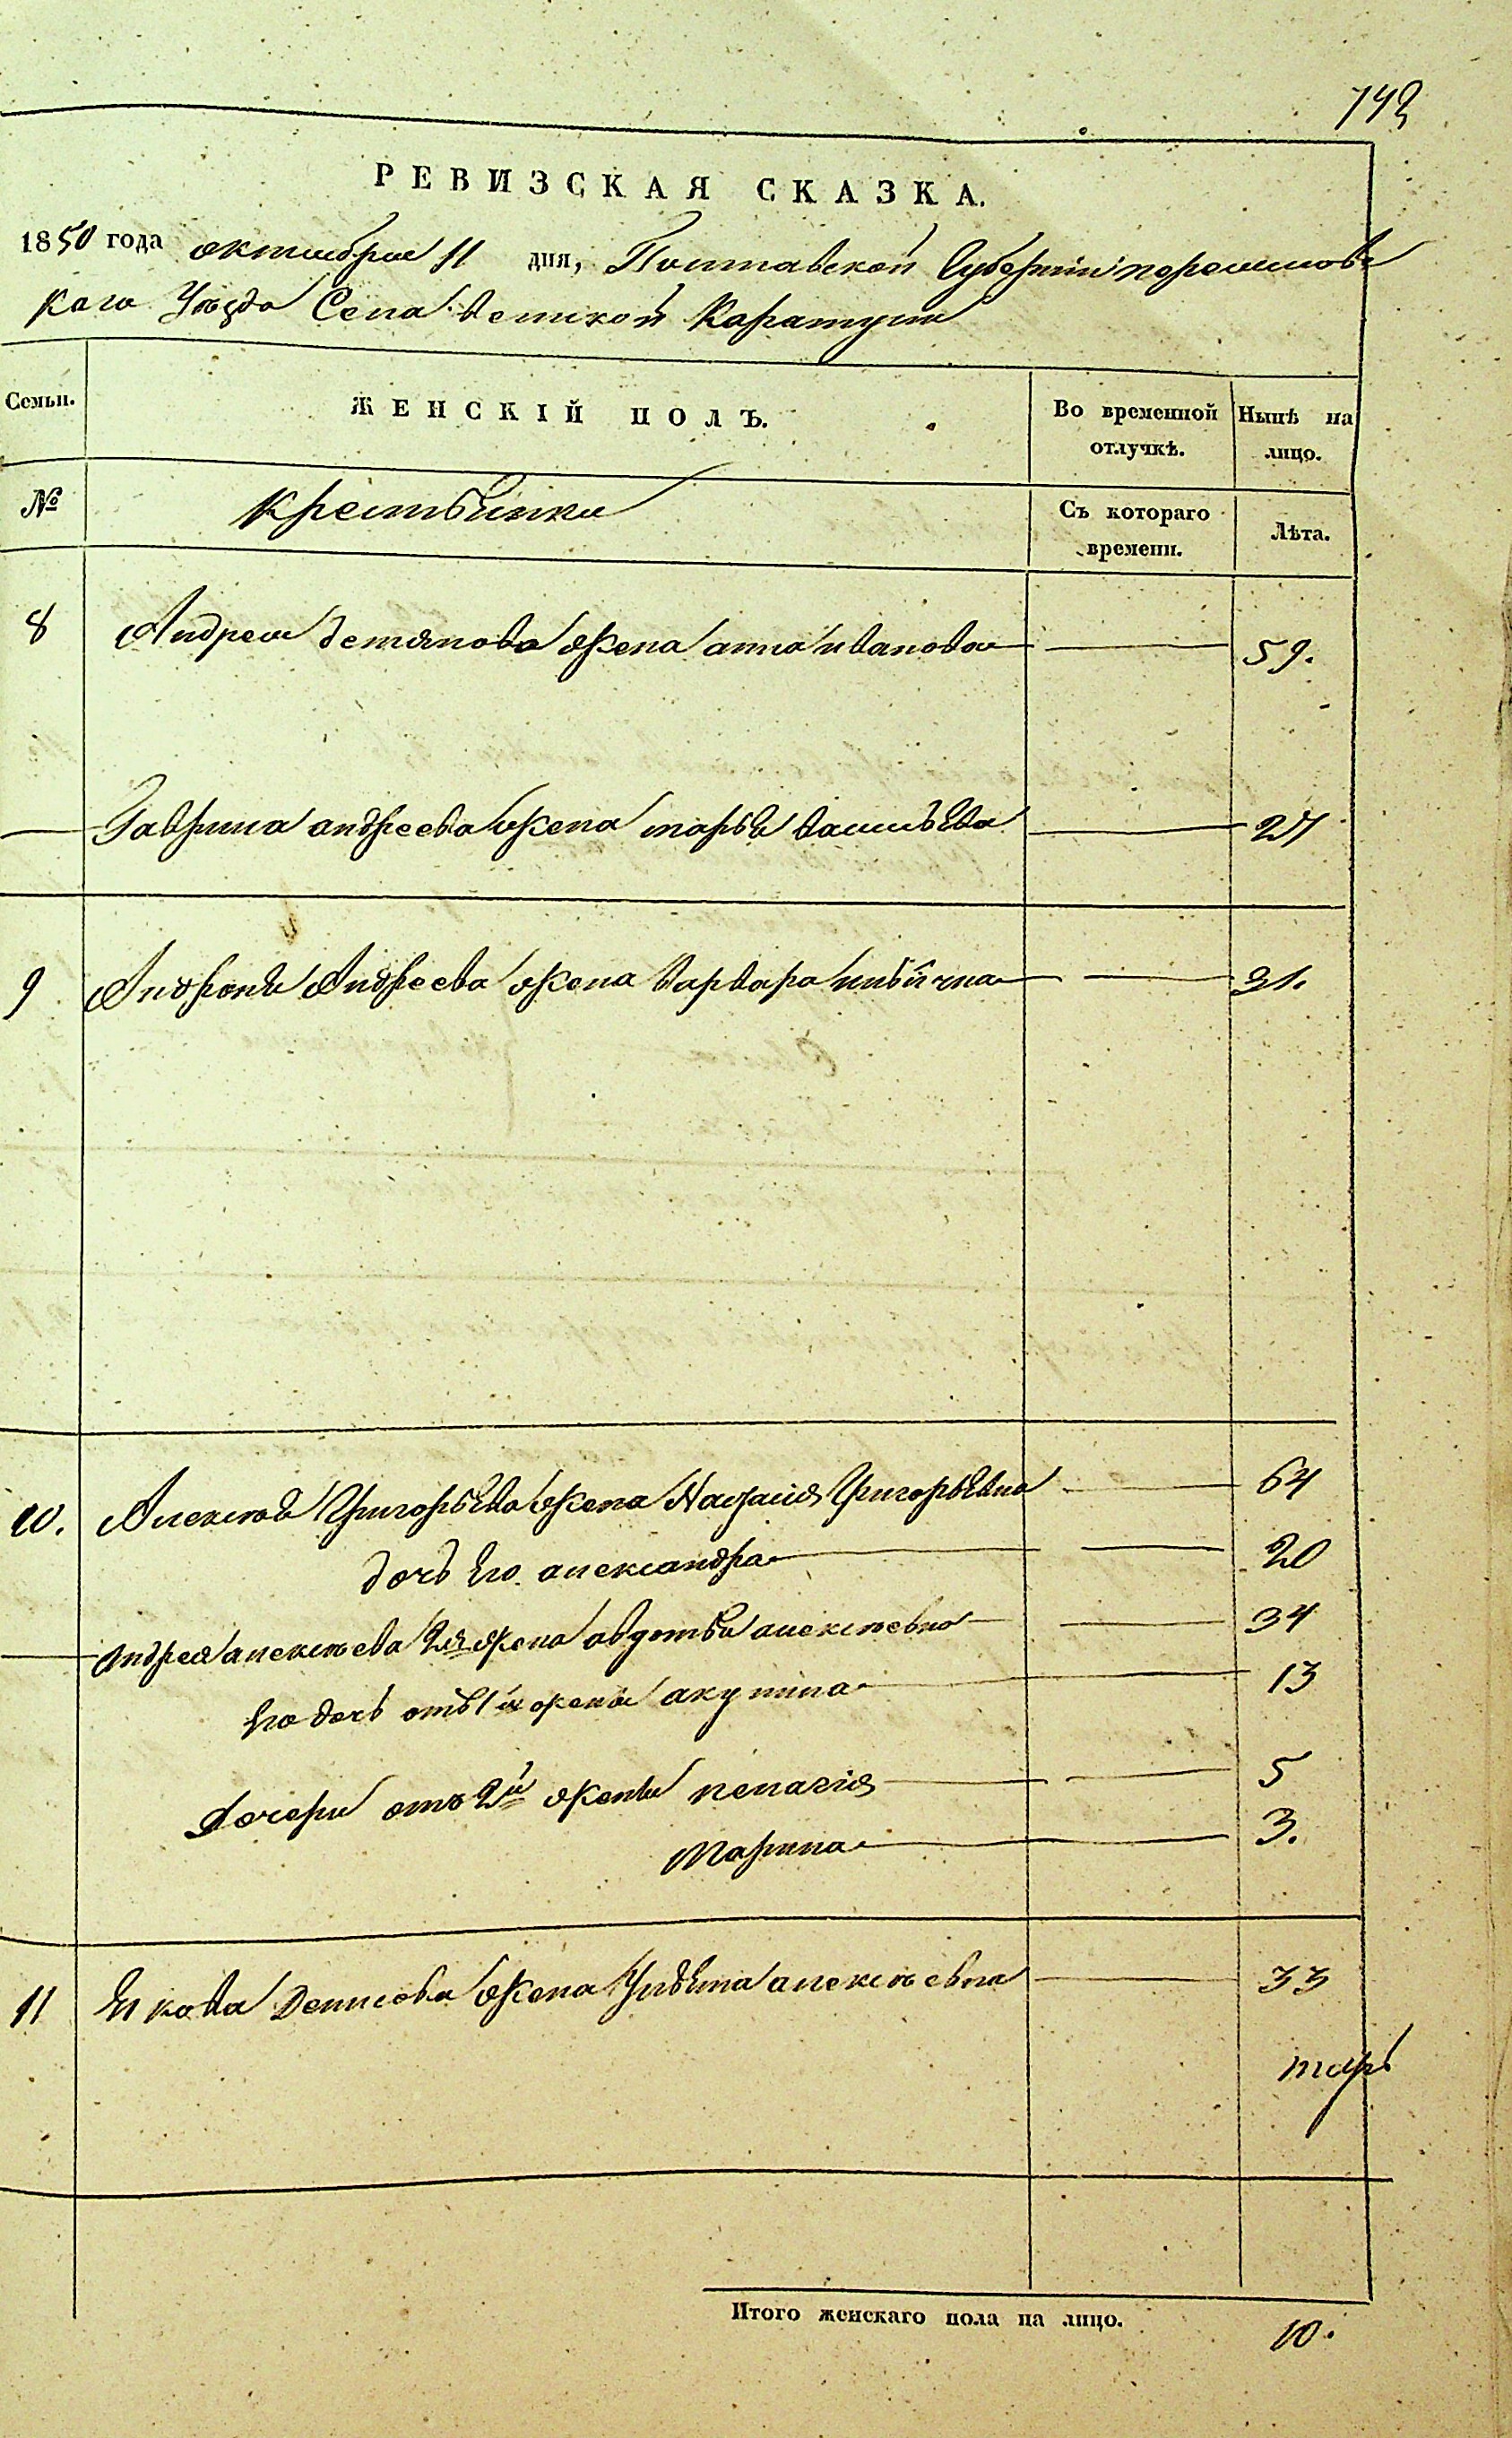 742
РЕВИЗСКАЯ СКАЗКА.
1850 года октября 11 дня, Полтавской Губернии переяславс
кого Уѣзда Села великой Каратули
Семьи. ЖЕНСКІЙ ПОЛЪ. Во временной отлучкѣ. Нынѣ на лицо.
№ крестьянки Съ котораго времени. Лѣта.
8 Андрея демянова жена анна иванова 59.
Гаврила андреева жена марья васильева 27
9 Андрея Андреева жена варвара 31.
10. Алексѣя Григорьева жена Настасія Григорьевна 64
дочь его александра 20
андрея алексѣева 2я жена авдотья алексѣевна 34
его дочь отъ 1й жены акулина 13
Дочери отъ 2й жены пелагія 5
Марина 3.
11 Якова Денисова жена Ульяна алексѣевна 33
Итого женскаго пола на лицо. 10.